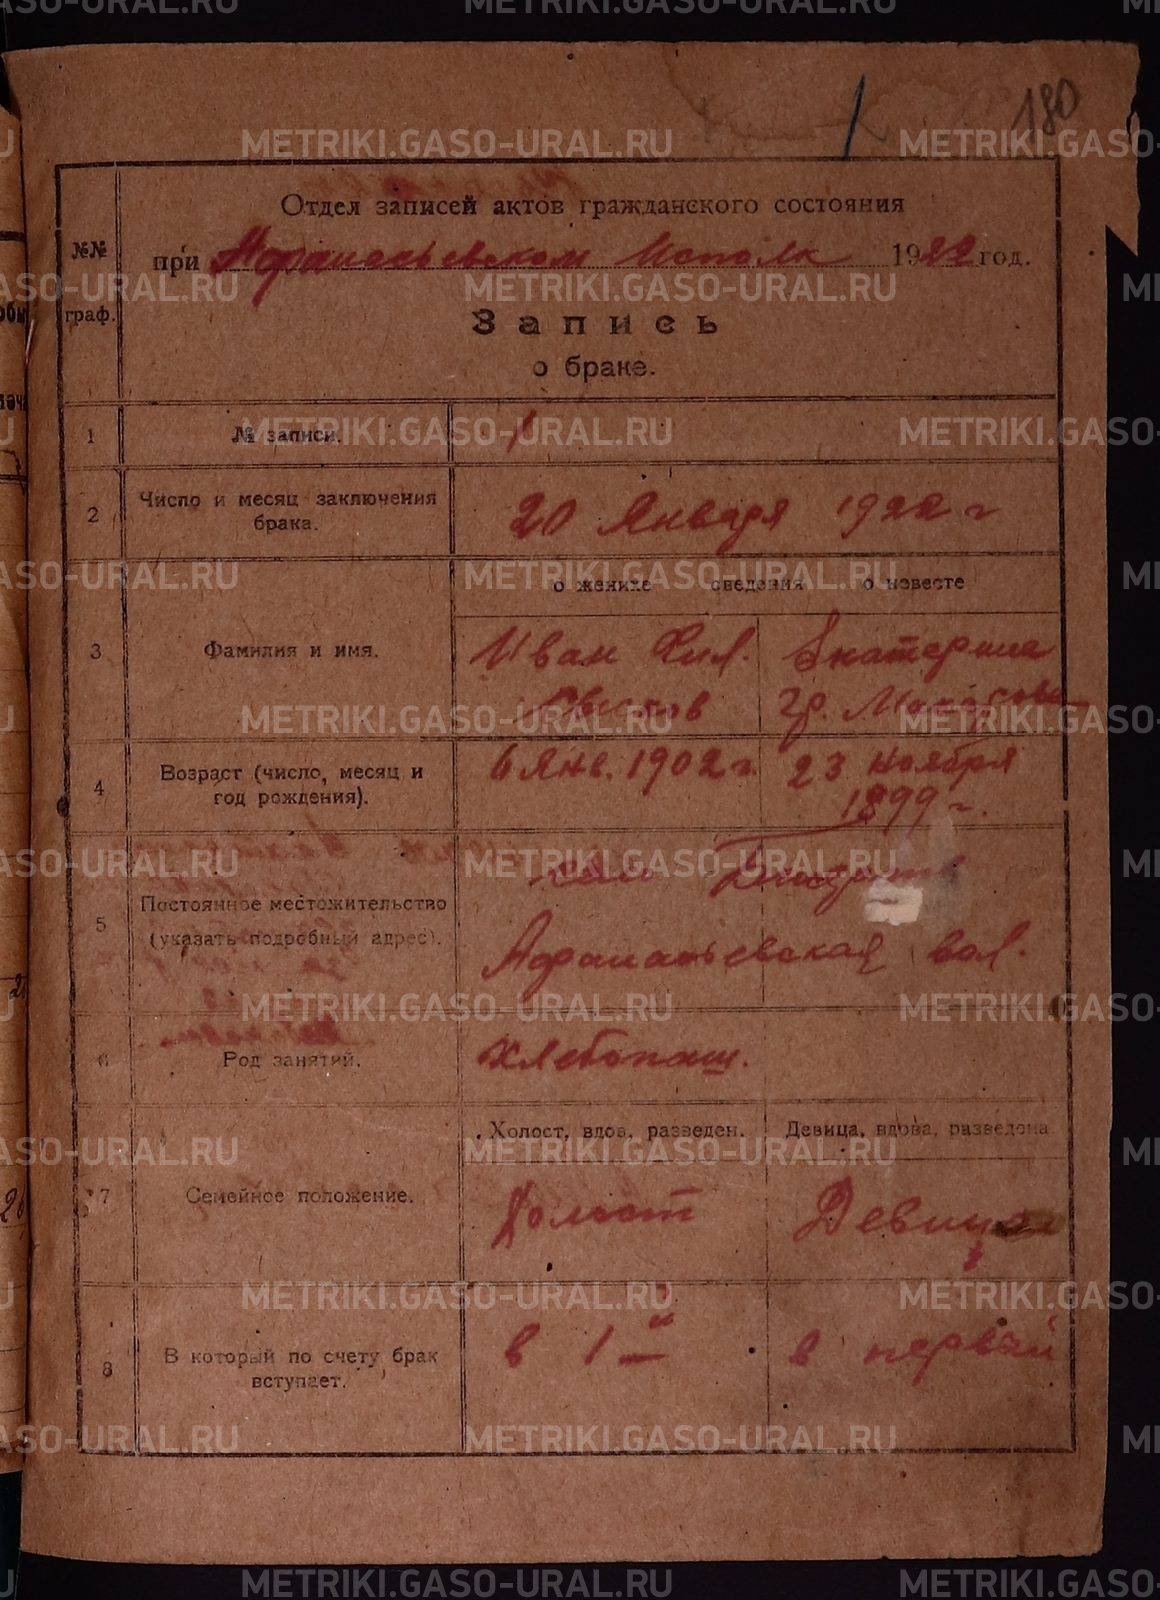 180
Отдел записей актов гражданского состояния
№№ граф.
при Афанасьевском Исполк 1922 год.
Запись
о браке.
1 № записи. 1
2 Число и месяц заключения брака. 20 Января 1922 г
о женихе сведения о невесте
3 Фамилия и имя.
Иван Фил. Екатерина
гр.
4 Возраст (число, месяц и год рождения).
6 Янв. 1902 г. 23 ноября
1899 г.
5 Постоянное местожительство (указать подробный адрес).
Афанасьевская вол.
6 Род занятий. хлебопаш.
Холост, вдов, разведен. Девица, вдова, разведена
7 Семейное положение. Холост Девица
8 В который по счету брак вступает. в 1й в первый
METRIKI.GASO-URAL.RU